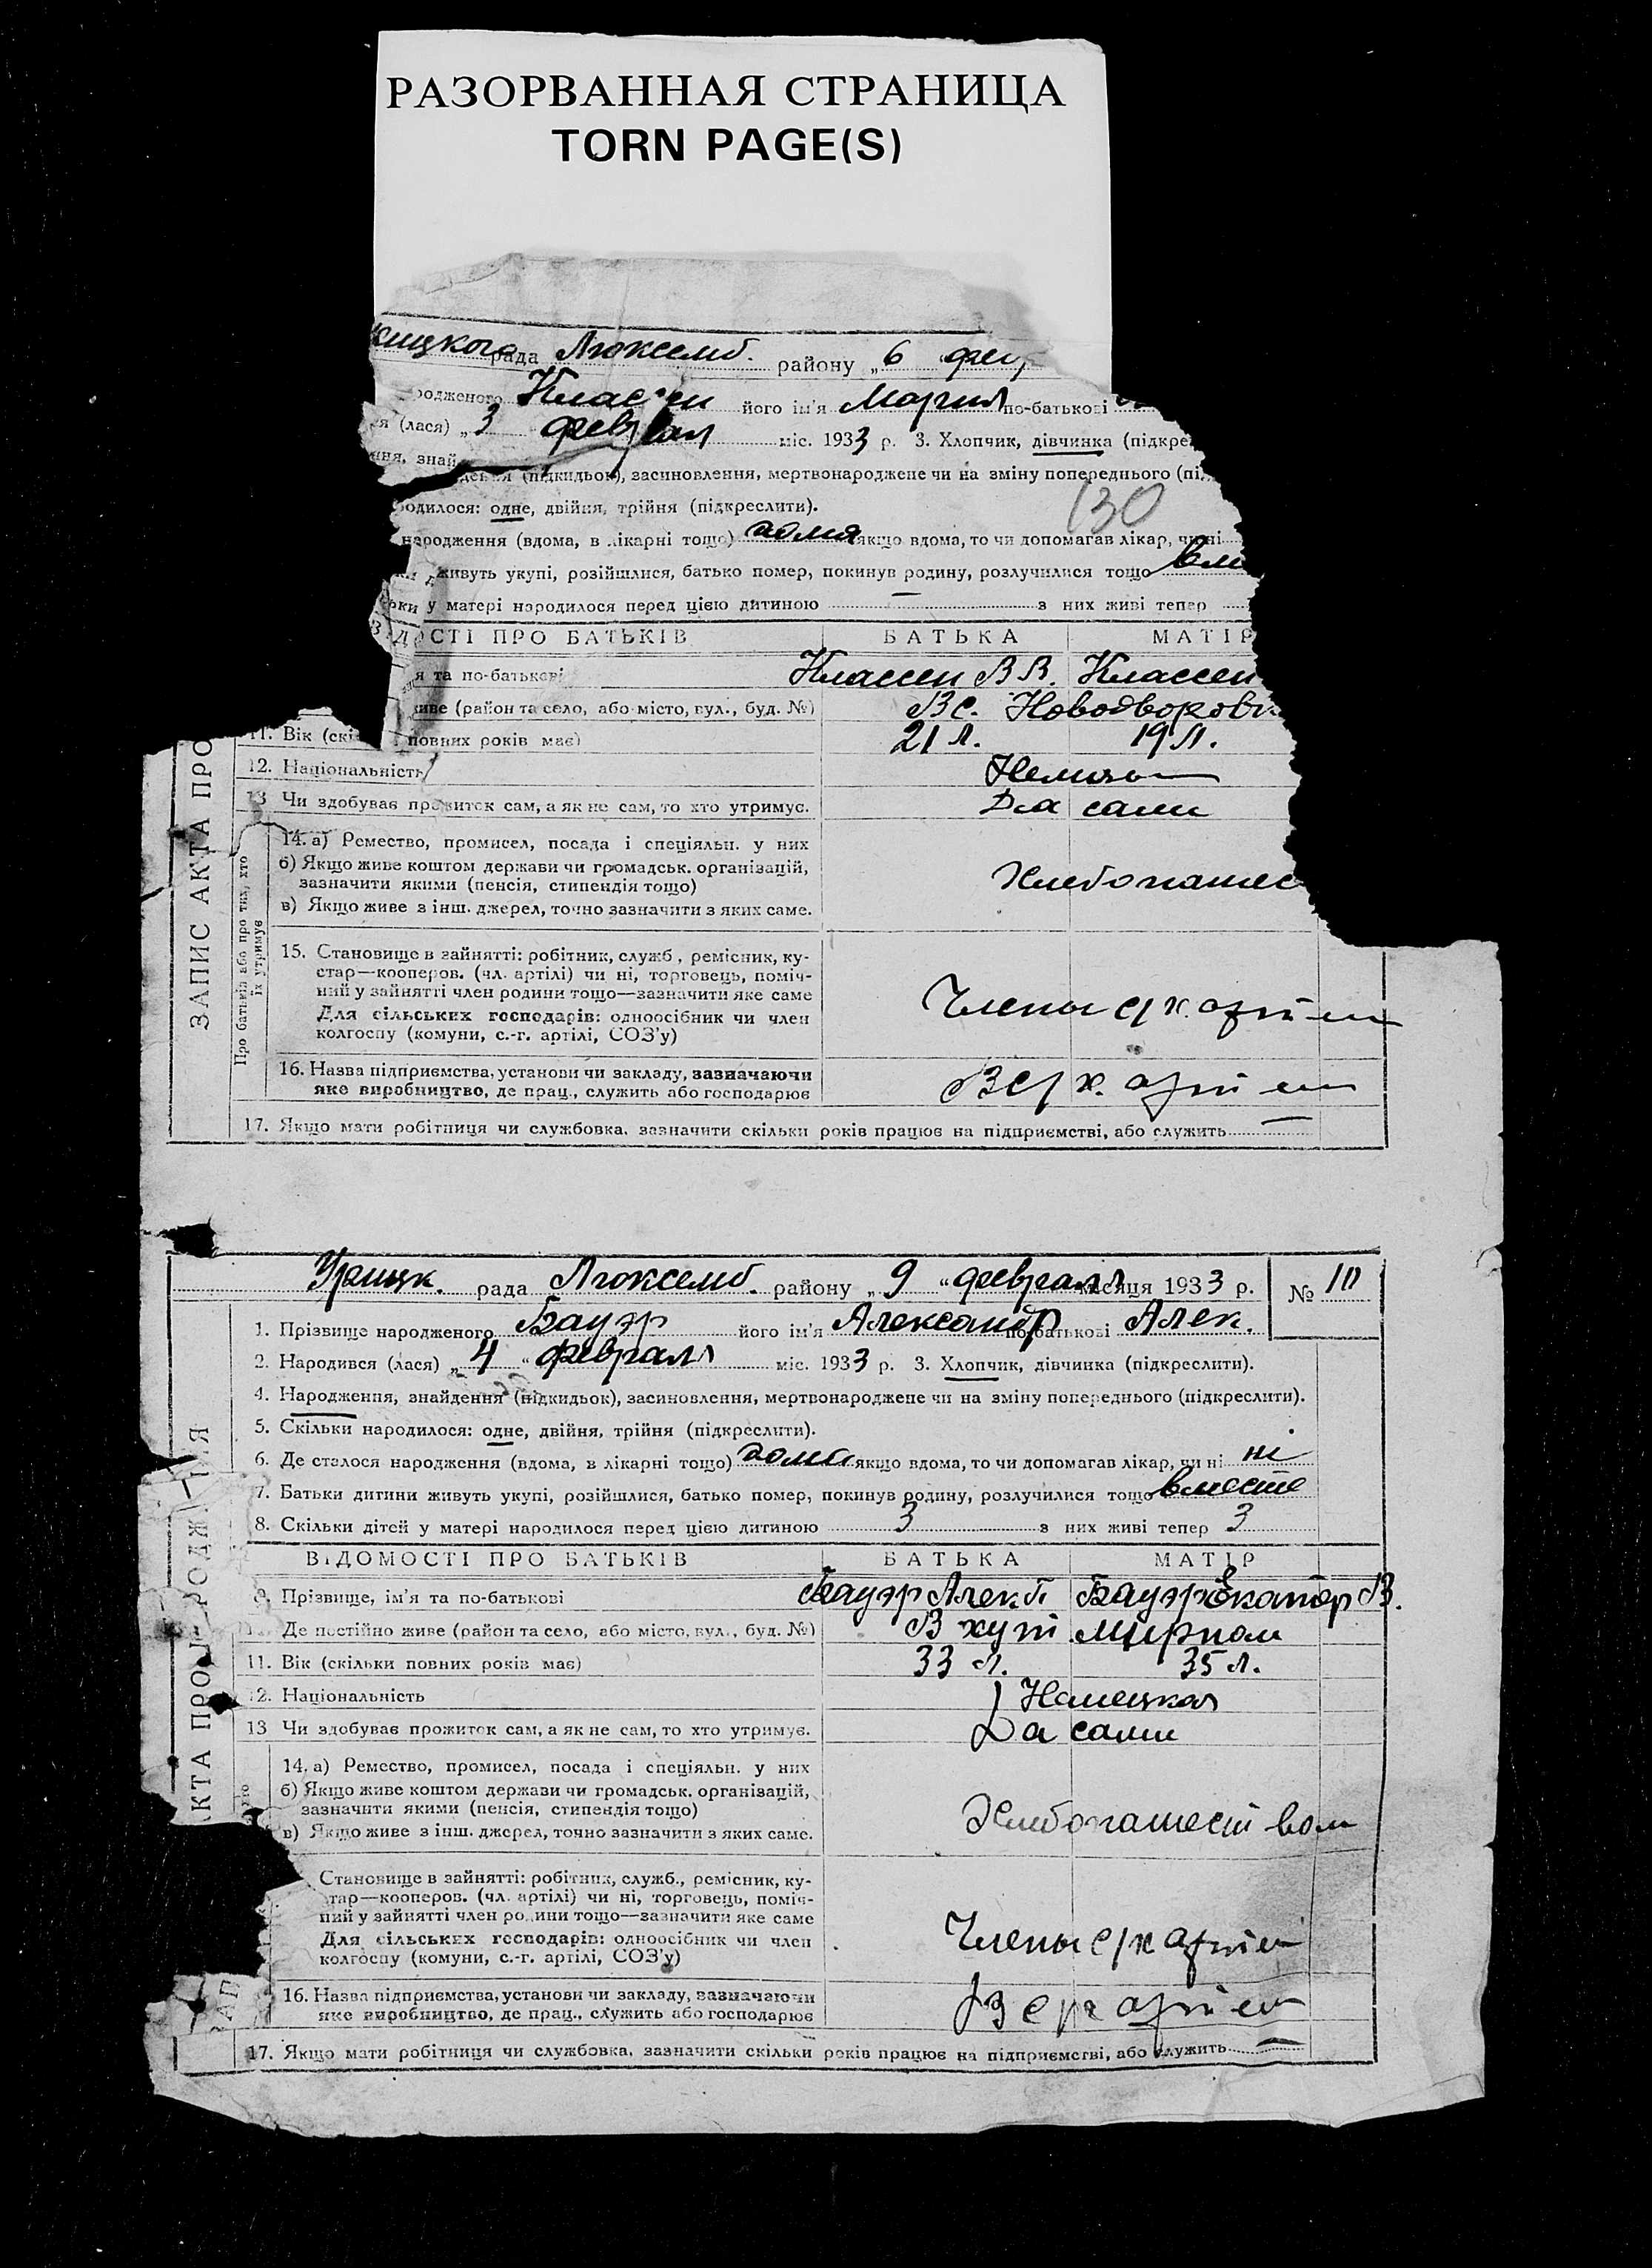 РАЗОРВАННАЯ СТРАНИЦА
TORN PAGE(S)
ицкого рада Люксемб. району „6 фев
родженого Классен його ім'я Мария по-батькові
ся (лася) „3 феврал міс. 1933 р. 3. Хлопчик, дівчинка (підкре
ння, знайдення (підкидьок), засиновлення, мертвонароджене чи на зміну попереднього (під
130
одилося: одне, двійня, трійня (підкреслити).
народження (вдома, в лікарні тощо) дома якщо вдома, то чи допомагав лікар, чи ні
живуть укупі, розійшлися, батько помер, покинув родину, розлучилися тощо вме
у матері народилося перед цією дитиною — з них живі тепер
ОСТІ ПРО БАТЬКІВ БАТЬКА МАТІР
я та по-батькові Классен В В. Классен
живе (район та село, або місто, вул., буд. №) В с. Новодворовк
11. Вік (скі повних років має) 21 л. 19 л.
12. Національність
13 Чи здобуває прожиток сам, а як не сам, то хто утримує. Да сами
ЗАПИС АКТА ПРО
Про батьків або про тих, хто їх утримує
14. а) Ремество, промисел, посада і спеціяльн. у них
б) Якщо живе коштом держави чи громадськ. організацій,
зазначити якими (пенсія, стипендія тощо) Хлебопашес
в) Якщо живе з інш. джерел, точно зазначити з яких саме.
15. Становище в зайнятті: робітник, служб., ремісник, ку-
стар—кооперов. (чл. артілі) чи ні, торговець, поміч-
ний у зайнятті член родини тощо—зазначити яке саме Члены с/х. артели
Для сільських господарів: одноосібник чи член
колгоспу (комуни, с.-г. артілі, СОЗ'у)
16. Назва підприємства, установи чи закладу, зазначаючи В с/х. артели
яке виробництво, де прац., служить або господарює
17. Якщо мати робітниця чи службовка, зазначити скільки років працює на підприємстві, або служить —
Урицк. рада Люксемб. району „9 “ февраля місяця 1933 р. № 10
1. Прізвище народженого Бауэр його ім'я Александр по-батькові Алек.
2. Народився (лася) „4 “ февраля міс. 1933 р. 3. Хлопчик, дівчинка (підкреслити).
4. Народження, знайдення (підкидьок), засиновлення, мертвонароджене чи на зміну попереднього (підкреслити).
5. Скільки народилося: одне, двійня, трійня (підкреслити).
6. Де сталося народження (вдома, в лікарні тощо) дома якщо вдома, то чи допомагав лікар, чи ні ні
7. Батьки дитини живуть укупі, розійшлися, батько помер, покинув родину, розлучилися тощо вместе
8. Скільки дітей у матері народилося перед цією дитиною 3 з них живі тепер 3
ВІДОМОСТІ ПРО БАТЬКІВ БАТЬКА МАТІР
9. Прізвище, ім'я та по-батькові Бауэр Алек. Бауэр Екатер В.
Де постійно живе (район та село, або місто, вул., буд. №) В хут. Мирном
11. Вік (скільки повних років має) 33 л. 35 л.
12. Національність Немецкая
13 Чи здобуває прожиток сам, а як не сам, то хто утримує. Да сами
АКТА ПРО РОДЖ
14. а) Ремество, промисел, посада і спеціяльн. у них
б) Якщо живе коштом держави чи громадськ. організацій,
зазначити якими (пенсія, стипендія тощо) Хлебопашеством
в) Якщо живе з інш. джерел, точно зазначити з яких саме.
Становище в зайнятті: робітник, служб., ремісник, ку-
тар—кооперов. (чл. артілі) чи ні, торговець, поміч-
ний у зайнятті член родини тощо—зазначити яке саме Члены с/х артели
Для сільських господарів: одноосібник чи член
колгоспу (комуни, с.-г. артілі, СОЗ'у)
16. Назва підприємства, установи чи закладу, зазначаючи В с/х артели
яке виробництво, де прац., служить або господарює
17. Якщо мати робітниця чи службовка, зазначити скільки років працює на підприємстві, або служить —